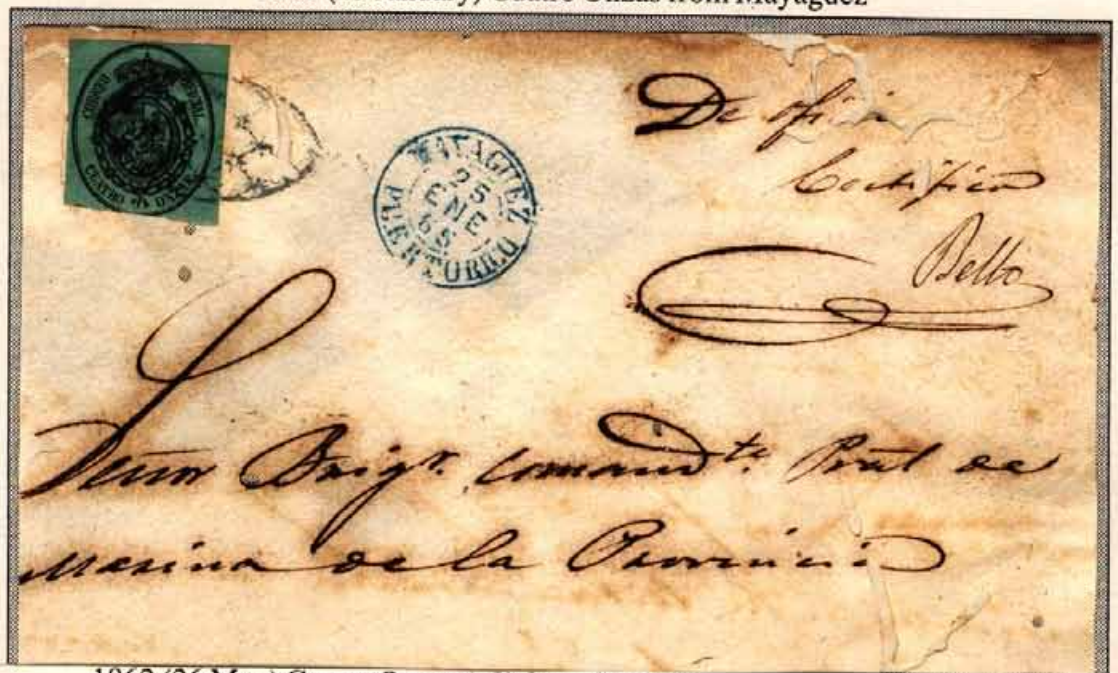 (             ) Cuatro Onzas from Mayaguez
CORREO OFICIAL
CUATRO ONZAS
MAYAGUEZ
25
ENE
65
PUERTO-RICO
De ofi
Certifica
Bello
Señor Brigr. Comandte. Pral de
Marina de la Provincia